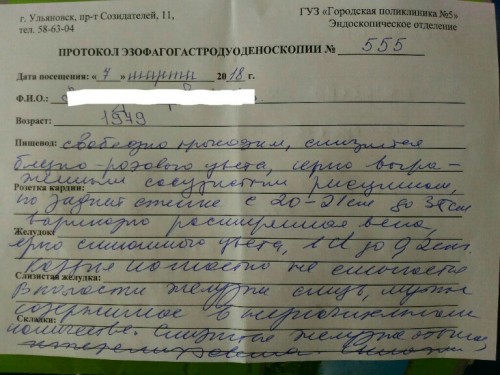 г. Ульяновск, пр-т Созидателей, 11,
тел. 58-63-04
ГУЗ «Городская поликлиника №5»
Эндоскопическое отделение
ПРОТОКОЛ ЭЗОФАГОГАСТРОДУОДЕНОСКОПИИ № 555
Дата посещения: « 7 » марта 2018 г.
Ф.И.О.:
Возраст: 1979
Пищевод: свободно проходим, слизистая
бледно-розового цвета, ярко выра-
женным сосудистым рисунком,
Розетка кардии:
по задней стенке с 20-21см до
варикозно расширенная вена,
Желудок:
цвета, до 0,2см.
кардия полностью не смыкается
Слизистая желудка:
В полости желудка слизь, мутное
содержимое в незначительном
Складки:
количестве. Слизистая желудка